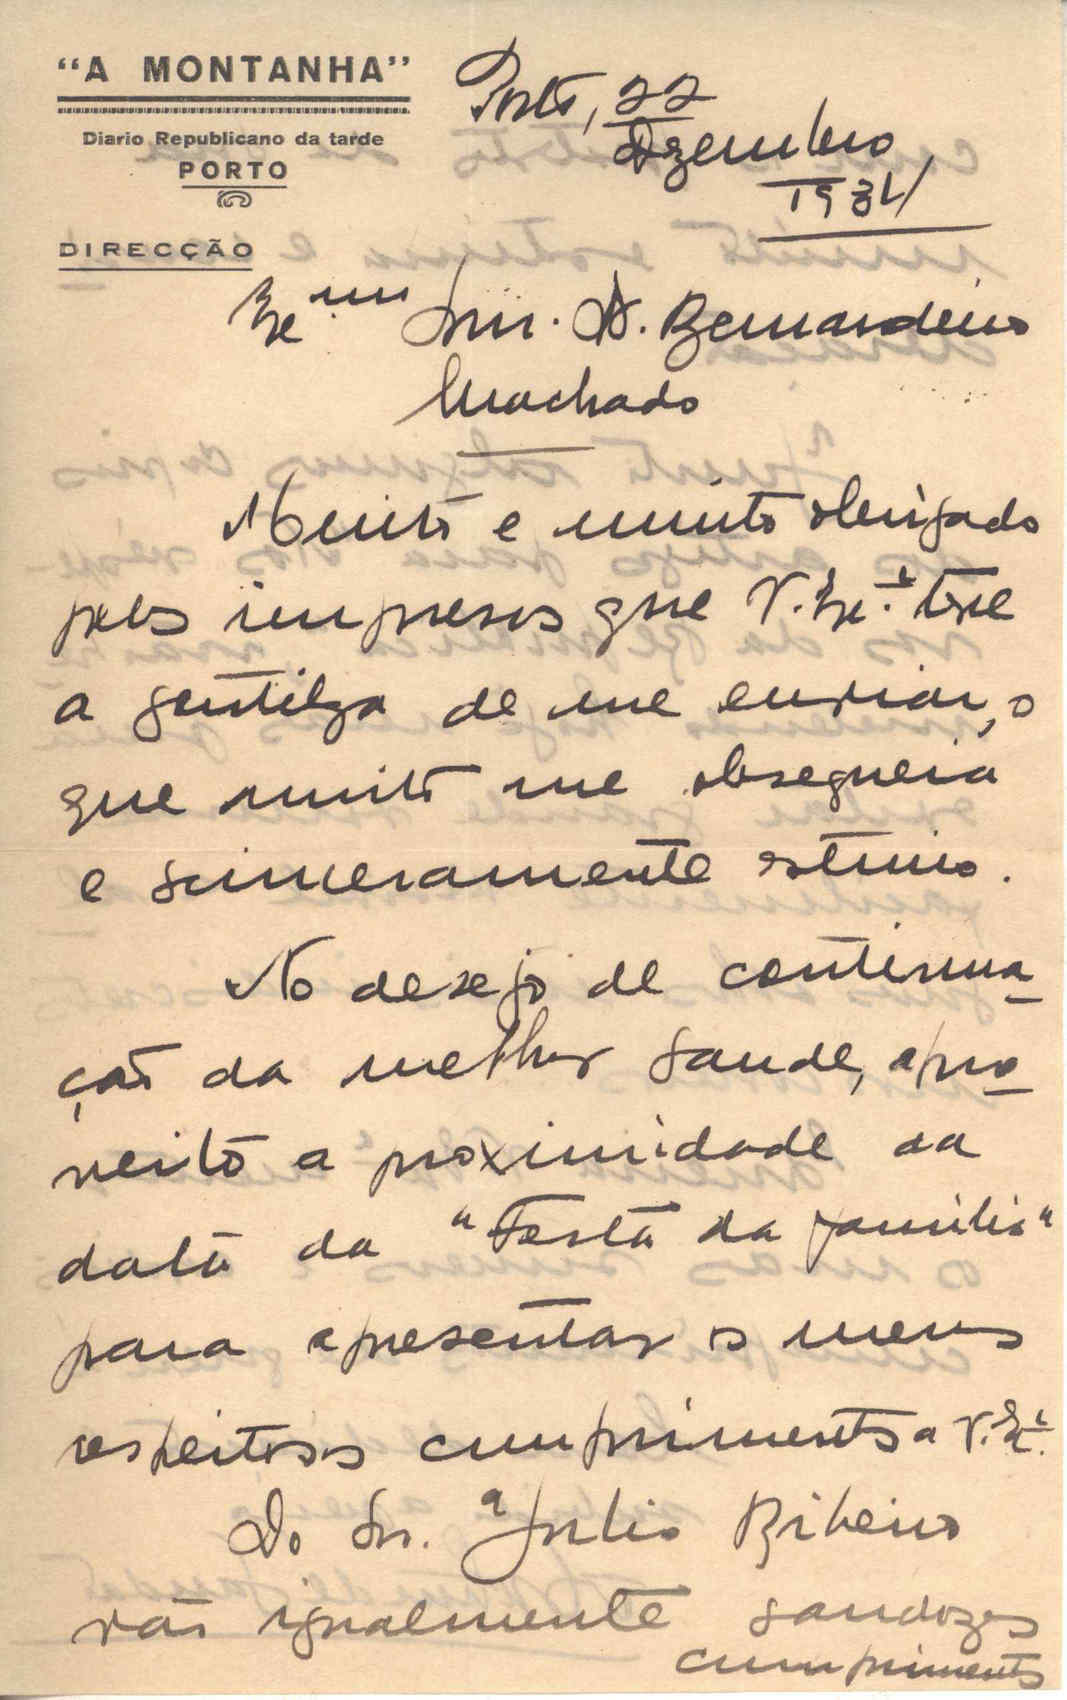 "A MONTANHA"
Diario Republicano da tarde
PORTO
DIRECÇÃO
Porto, 22
Dezembro
1934
Exmo Snr. Dr. Bernardino
Machado
Muito e muito obrigado
pelos impresos que V. Exª. teve
a gentileza de me enviar, o
que muito me obsequeia
e sinceramente estimo.
No desejo de continua-
ção da melhor saude, apro-
veito a proximidade da
data da "Festa da familia"
para apresentar os meus
respeitosos cumprimentos a V. Exª.
Do Snr. Julio Ribeiro
vão igualmente saudozos
cumprimentos